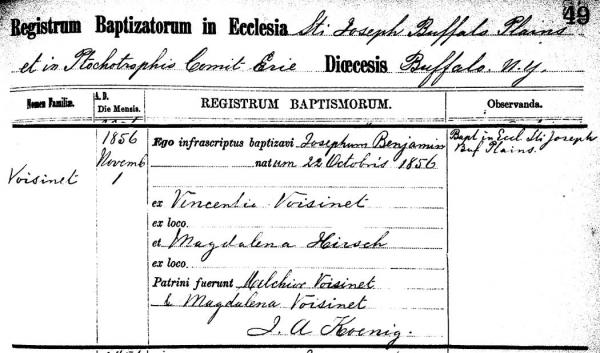 49
Registrum Baptizatorum in Ecclesia Sti Joseph Buffalo Plains
et in Ptochotrophis Comit Erie Diœcesis Buffalo N.Y.
Nomen Familiæ. A. D. Die Mensis. REGISTRUM BAPTISMORUM. Observanda.
1856 Ego infrascriptus baptizavi Josephum Benjamin Bapt in Eccl Sti Joseph
Novemb natum 22 Octobris 1856 Buf Plains.
Voisinet 1
ex Vincentio Voisinet
ex loco
et Magdalena Hirsch
ex loco
Patrini fuerunt Melchior Voisinet
& Magdalena Voisinet
J. A Koenig.